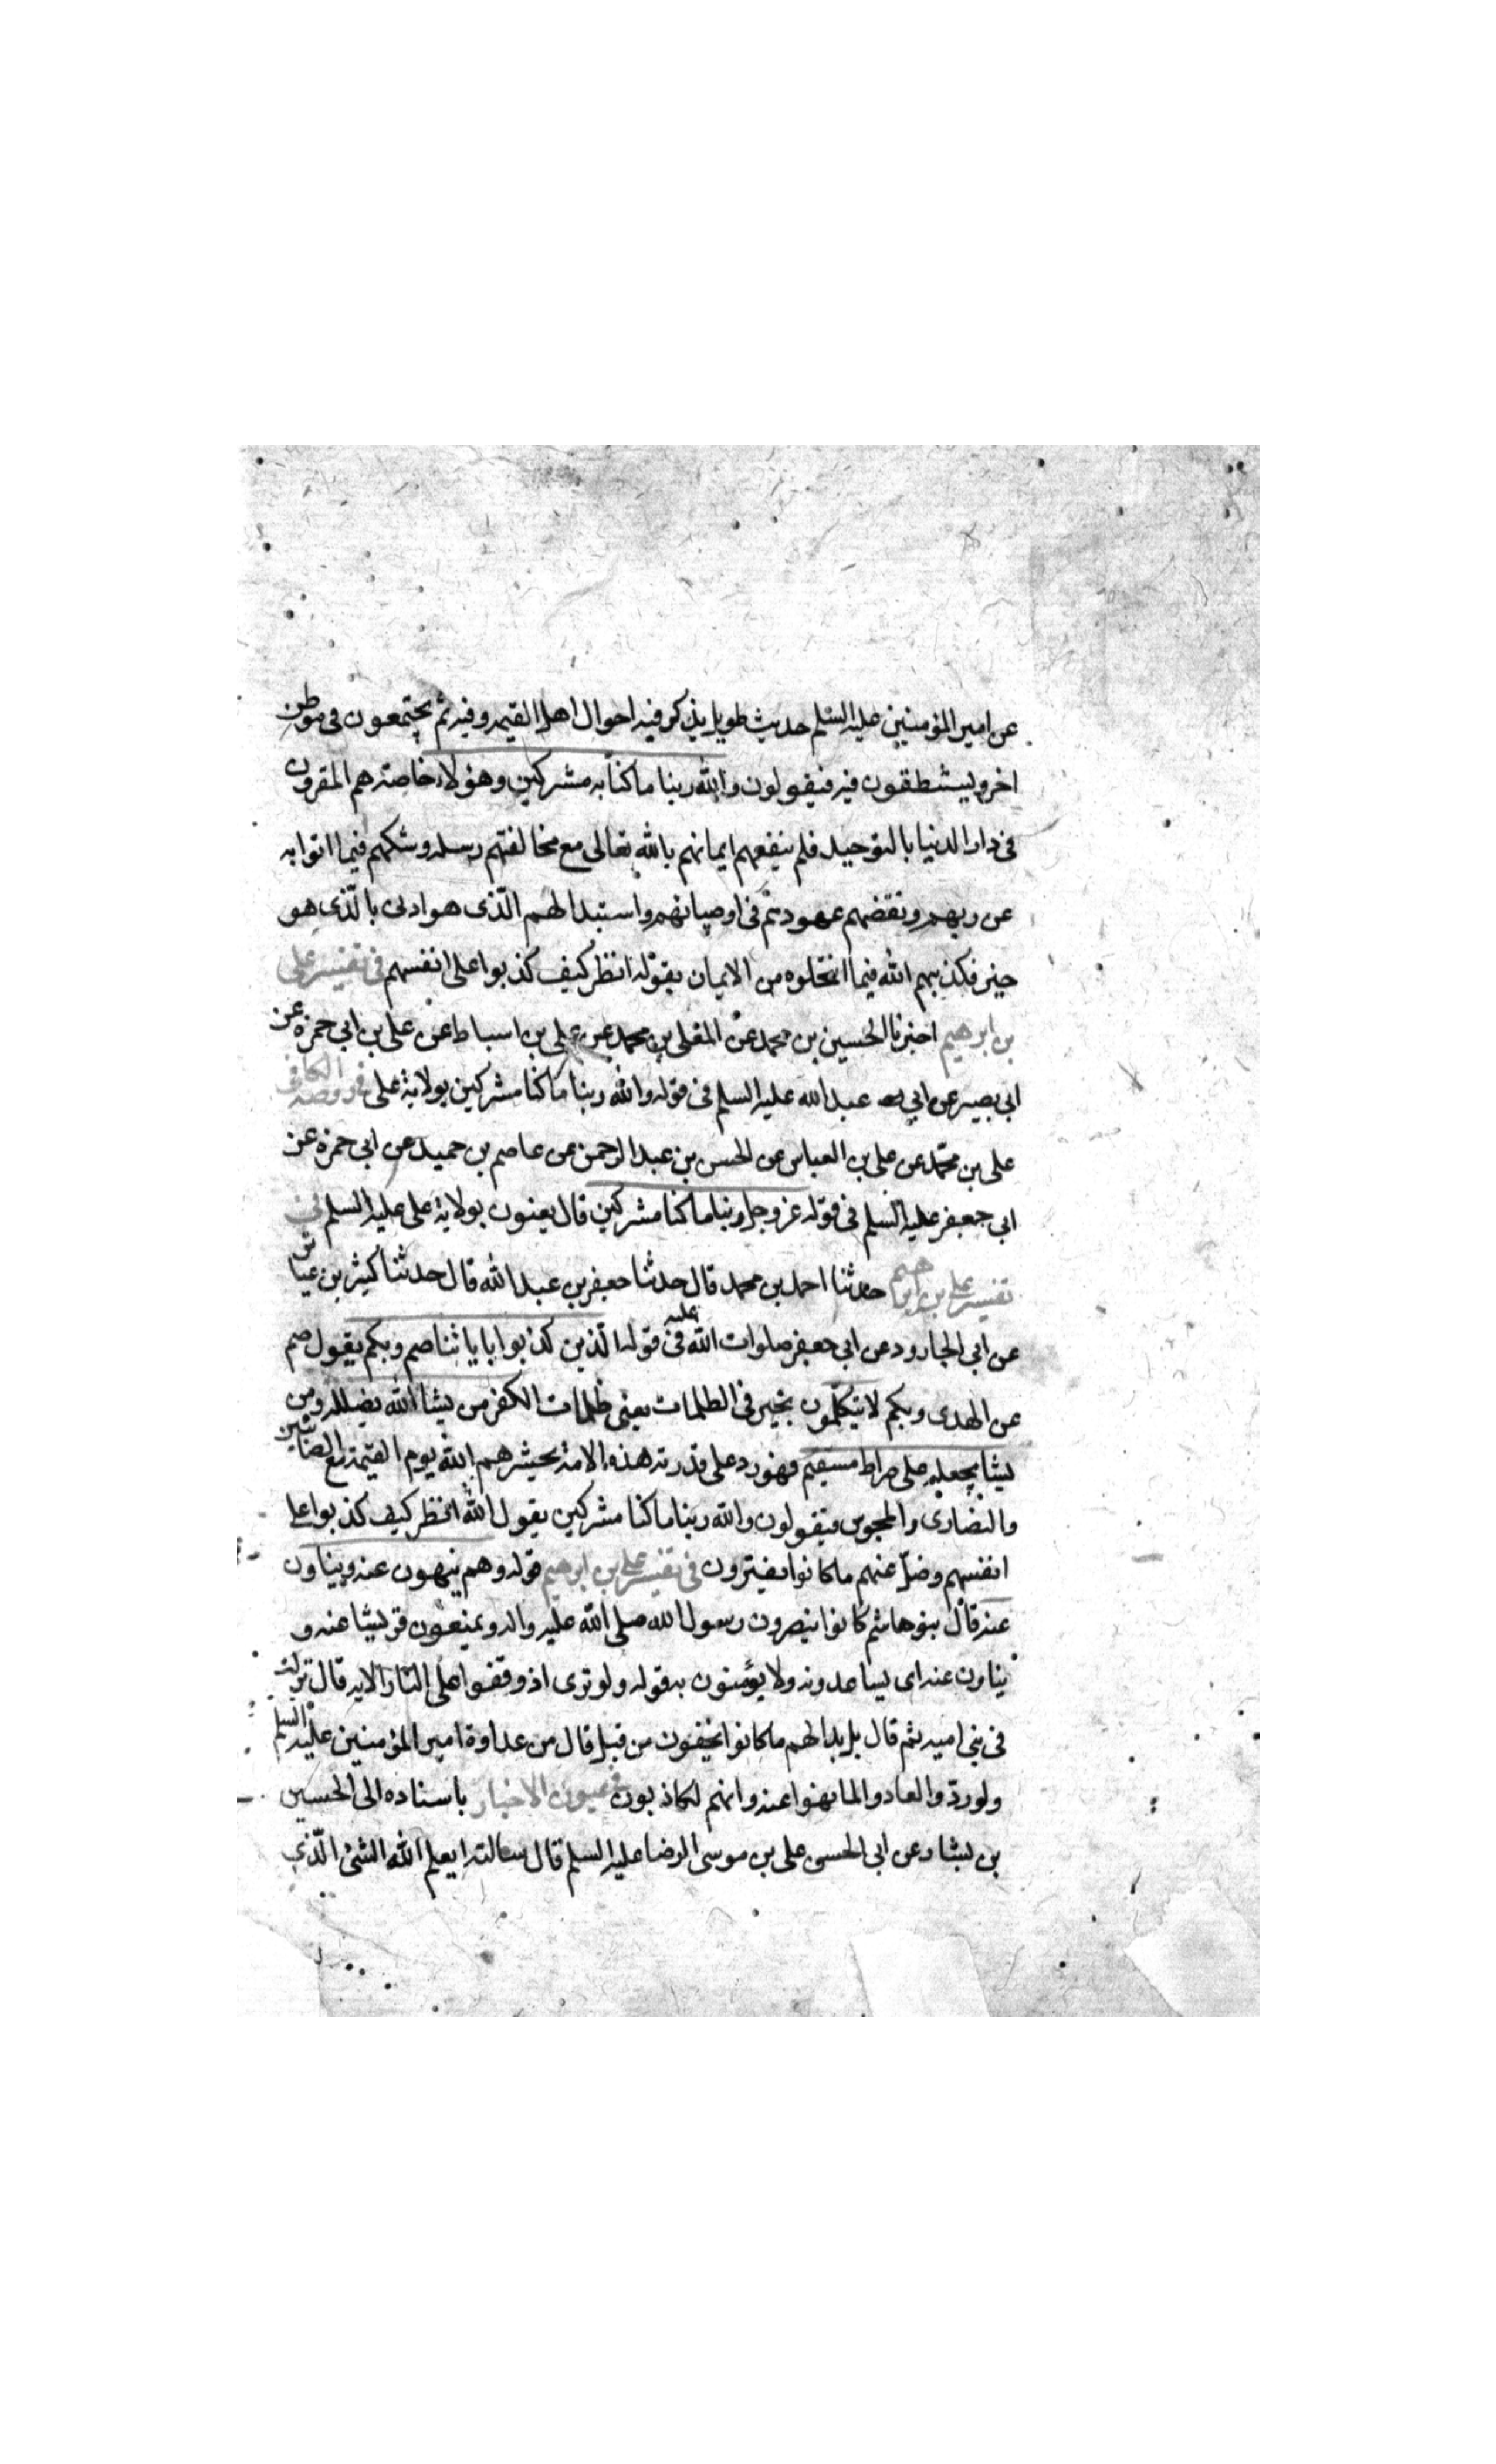 عن امير المؤمنين عليه السلم حديث طويل يذكر فيه احوال اهل القيمه وفيه ثم يجتمعون في موطن
اخر ويستنطقون فيه فيقولون والله ربنا ما كنا به مشركين وهؤلاء خاصته هم المقرون
في دار الدنيا بالتوحيد فلم ينفعهم ايمانهم بالله تعالى مع مخالفتهم رسله وشكهم فيما اتوا به
عن ربهم ونقضهم عهودهم في اوصيائهم واستبدالهم الّذى هو ادنى بالّذى هو
خير فكذبهم الله فيما انتحلوه من الايمان بقوله انظر كيف كذبوا على انفسهم في تفسير على
بن ابرهيم اخبرنا الحسين بن محمد عن المعلى بن محمد عن على بن اسباط عن على بن ابي حمزه عن
ابى بصير عن ابي عبد الله عليه السلم في قوله والله ربنا ما كنا مشركين بولاية على في روضه الكافي
على بن محمّد عن على بن العباس عن الحسن بن عبد الرحمن عن عاصم بن حميد عن ابى حمزه عن
ابى جعفر عليه السلم في قوله عز وجل ربنا ما كنا مشركين قال يعنون بولاية على عليه السلم في
تفسير على بن ابرهيم حدثنا احمد بن محمد قال حدثنا جعفر بن عبد الله قال حدثنا كثير بن عياش
عن ابى الجارود عن ابى جعفر صلوات الله عليه في قوله الّذين كذبوا باياتنا صم وبكم يقول صم
عن الهدى وبكم لا يتكلّمون بخير في الظلمات يعنى ظلمات الكفر من يشا الله يضلله ومن
يشا يجعله على صراط مستقيم فهو رد على قدرية هذه الامة يحشرهم الله يوم القيمة مع الصابئين
والنصارى والمجوس فيقولون والله ربنا ما كنا مشركين يقول الله انظر كيف كذبوا على
انفسهم وضلّ عنهم ما كانوا يفترون في تفسير على بن ابرهيم قوله وهم ينهون عنه ويناون
عنه قال بنو هاشم كانوا ينصرون رسول الله صلى الله عليه واله ويمنعون قريشا عنه و
يناون عنه اى يساعدونه ولا يؤمنون به قوله ولو ترى اذ وقفوا على النار الايه قال نزلت
في بنى اميه ثم قال بل بدا لهم ما كانوا يخفون من قبل قال من عداوة امير المؤمنين عليه السلم
ولو ردّوا لعادوا لما نهوا عنه وانهم لكاذبون في عيون الاخبار باسناده الى الحسين
بن بشار عن ابى الحسن على بن موسى الرضا عليه السلم قال سالته ايعلم الله الشئ الّذى